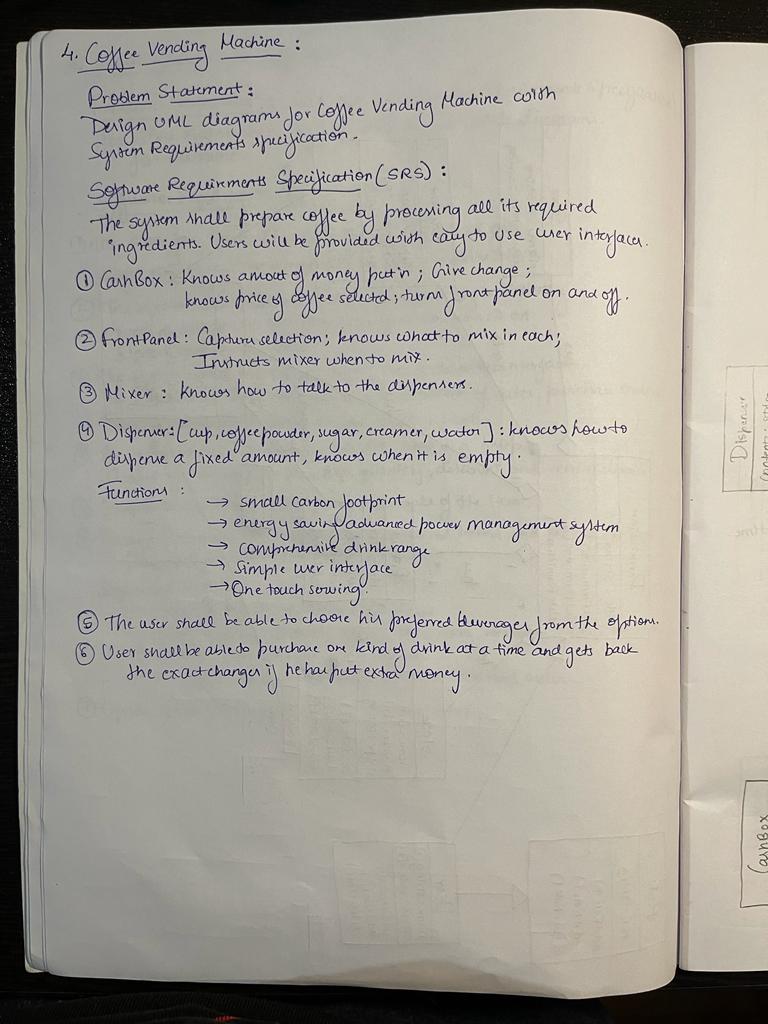 4. Coffee Vending Machine :
Problem Statement :
Design UML diagrams for Coffee Vending Machine with
System Requirements specification.
Software Requirements Specification (SRS) :
The system shall prepare coffee by processing all its required
ingredients. Users will be provided with easy to use user interfaces.
① CashBox : Knows amout of money put in ; Give change ;
knows price of coffee selected ; turns front panel on and off.
② FrontPanel : Captures selection; knows what to mix in each;
Instructs mixer when to mix.
③ Mixer : knows how to talk to the dispensers.
④ Dispenser : [cup, coffee powder, sugar, creamer, water] : knows how to
dispense a fixed amount, knows when it is empty.
Functions :
→ small carbon footprint
→ energy saving advanced power management system
→ comprehensive drink range
→ Simple user interface
→ One touch serving.
⑤ The user shall be able to choose his preferred beverages from the options.
⑥ User shall be able to purchase one kind of drink at a time and gets back
the exact changes if he has put extra money.
Dispenser
CashBox